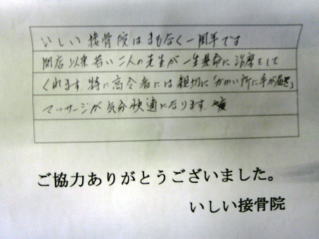 いしい接骨院はまもなく一周年です
開店以来若い二人の先生が一生懸命に治療をして
くれます 特に高令者には親切に「かゆい所に手が届き」
マッサージが気分快適になります
ご協力ありがとうございました。
いしい接骨院